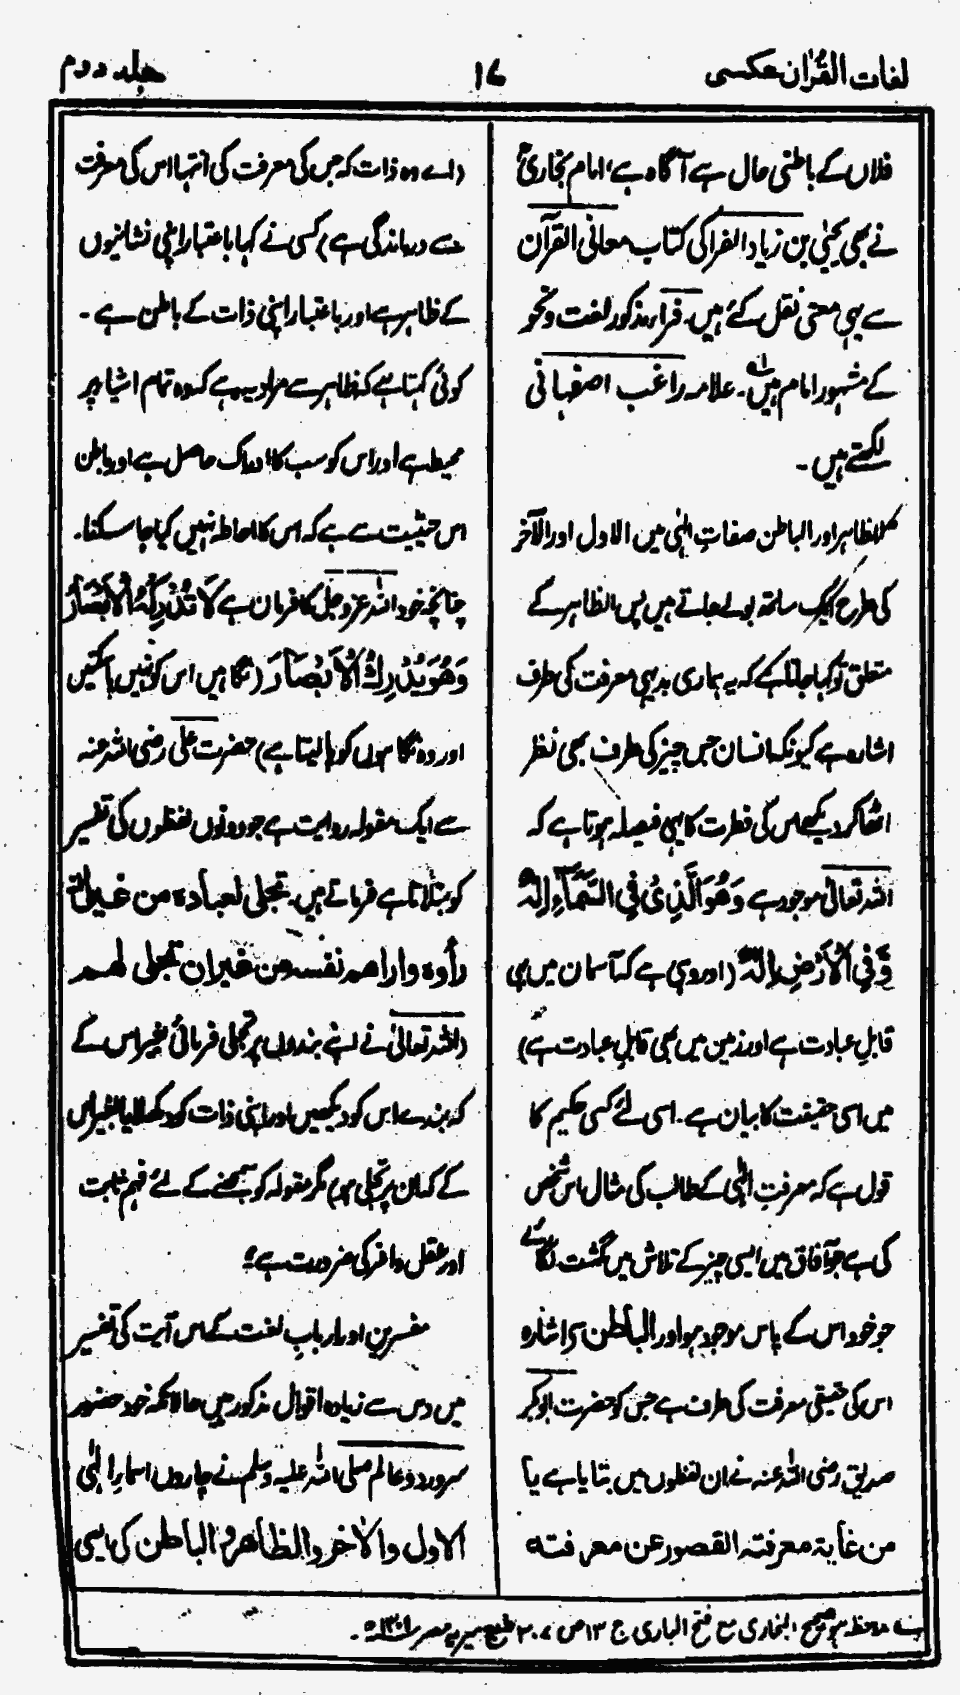 لغات القرآن عکسی
۱۷
جلد دوم
فلاں کے باطنی حال سے آگاہ ہے، امام بخاریؒ
نے بھی یحییٰ بن زیاد الفرا کی کتاب معانی القرآن
سے یہی معنی نقل کئے ہیں۔ فراء مذکور لغت و نحو
کے مشہور امام ہیں۔ علامہ راغب اصفہانی
لکھتے ہیں۔
الظاہر اور الباطن صفاتِ الٰہی میں الاول اور الآخر
کی طرح ایک ساتھ بولے جاتے ہیں پس الظاہر کے
متعلق تو کہا جاتا ہے کہ یہ ہماری بدیہی معرفت کی طرف
اشارہ ہے کیونکہ انسان جس چیز کی طرف بھی نظر
اٹھا کر دیکھے اس کی فطرت کا یہی فیصلہ ہوتا ہے کہ
اللہ تعالیٰ موجود ہے وَهُوَ الَّذِیْ فِی السَّمَآءِ اِلٰهٌ
وَّفِی الْاَرْضِ اِلٰهٌ (اور وہی ہے کہ آسمان میں بھی
قابلِ عبادت ہے اور زمین میں بھی قابلِ عبادت ہے)
میں اسی حقیقت کا بیان ہے۔ اسی لئے کسی حکیم کا
قول ہے کہ معرفتِ الٰہی کے طالب کی مثال اس شخص
کی ہے جو آفاق میں ایسی چیز کے تلاش میں گشت لگائے
جو خود اس کے پاس موجود ہو اور الباطن سے اشارہ
اس کی حقیقی معرفت کی طرف ہے جس کو حضرت ابو بکر
صدیق رضی اللہ عنہ نے ان لفظوں میں بتایا ہے یا
من غایة معرفته القصور عن معرفته
(اے وہ ذات کہ جس کی معرفت کی انتہا اس کی معرفت
سے درماندگی ہے) کسی نے کہا باعتبار اپنی نشانیوں
کے ظاہر ہے اور باعتبار اپنی ذات کے باطن ہے۔
کوئی کہتا ہے کہ ظاہر سے مراد یہ ہے کہ وہ تمام اشیا پر
محیط ہے اور اس کو سب کا ادراک حاصل ہے اور باطن
اس حیثیت سے ہے کہ اس کا احاطہ نہیں کیا جا سکتا۔
چنانچہ خود اللہ عزوجل کا فرمان ہے لَا تُدْرِكُهُ الْاَبْصَارُ
وَهُوَ يُدْرِكُ الْاَبْصَارَ (نگاہیں اس کو نہیں پا سکتیں
اور وہ نگاہوں کو پا لیتا ہے) حضرت علی رضی اللہ عنہ
سے ایک مقولہ روایت ہے جو دونوں لفظوں کی تفسیر
کو بتلاتا ہے فرماتے ہیں۔ تجلی لعباده من غیر ان
رأوه واراهم نفسه من غیر ان تجلی لهم
(اللہ تعالیٰ نے اپنے بندوں پر تجلی فرمائی بغیر اس کے
کہ بندے اس کو دیکھیں اور اپنی ذات کو دکھلایا بغیر اس
کے کہ ان پر تجلی ہو) مگر مقولہ کو سمجھنے کے لئے فہم ثابت
اور عقل وافر کی ضرورت ہے؛
مفسرین اور اربابِ لغت کے اس آیت کی تفسیر
میں دس سے زیادہ اقوال مذکور ہیں حالانکہ خود حضور
سرورِ دو عالم صلی اللہ علیہ وسلم نے چاروں اسماءِ الٰہی
الاول والآخر والظاهر والباطن کی ایسی
ملاحظہ ہو صحیح البخاری مع فتح الباری ج ۱۳ ص ۳۰۷ طبع میریہ مصر ۱۳۰۱ھ۔